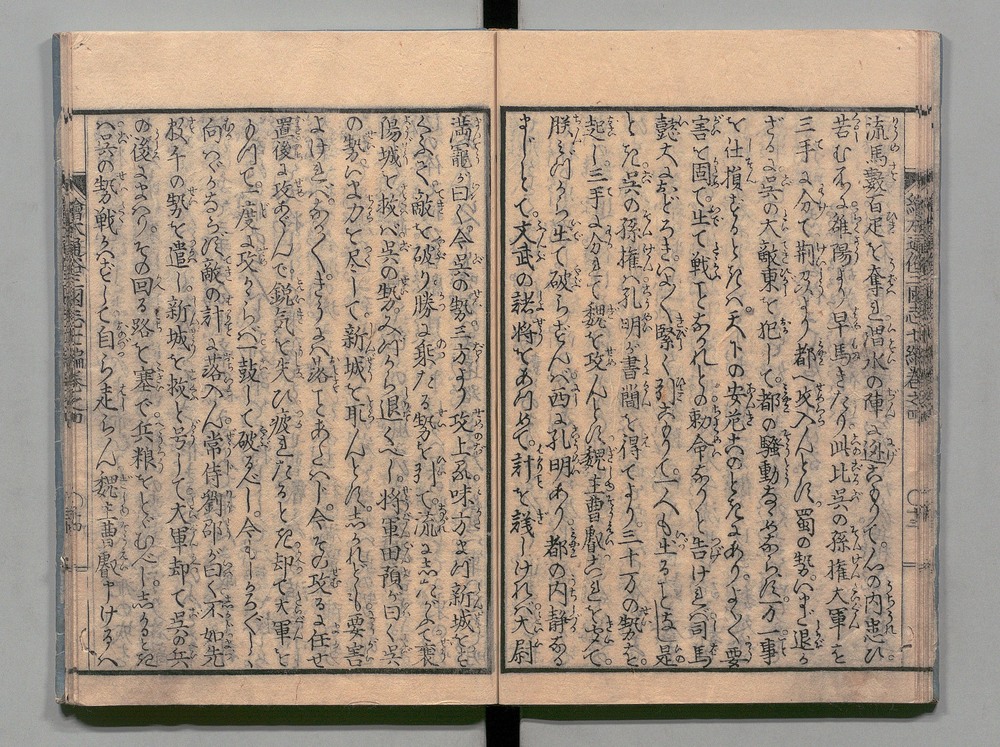 流馬数百疋を奪れ渭水の陣に逃こもりて心の内患ひ
苦むに雒陽より早馬きたり此比呉の孫権大軍を
三手に分て荊刄より都へ攻入んとに蜀の勢いまだ退か
ざるに呉の大敵東を犯して都の騒動なゝめならに万一事
を仕損ずるときハ天下の安危このときにありよく〳〵要
害を固て出て戦ことなかれとの勅命なりと告けれバ司馬
懿大におどろきいよ〳〵緊く引こもりて一人も出ることなし是
とき呉の孫権ハ孔明が書簡を得てより三十万の勢を
起し三手に分れて魏を攻んとに魏主曹叡これを聞て
朕みづから出て破らずんバ西に孔明あり都の内静なる
まじとて文武の諸将をあつめて計を議しけれバ大尉
満寵が曰く今呉の勢三方より攻上る味方まづ新城を
敵を破り勝に乗たる勢を引て流にしたがふて襄
陽城を救ハ呉の勢みづから退くべし将軍田預が曰く呉
の勢いま力を尽して新城を取んとにしかれども要害
よけれバなか〳〵きうに落ことあたハじ今その攻るに任せ
置後に攻あぐんで鋭気を失ひ疲れたるとき却て大軍を
もつて一度に攻かゝらバ一鼓して破るべし今もしかろ〴〵しく
向ハゞかならず敵の計に落入ん常侍劉邵が曰く不如先
数千の勢を遣し新城を救と号して大軍却て呉の兵
の後にまハりその回る路を塞で兵粮をとゞむべししかるとき
ハ呉の勢戦ハずして自ら走らん魏主曹叡申けるハ